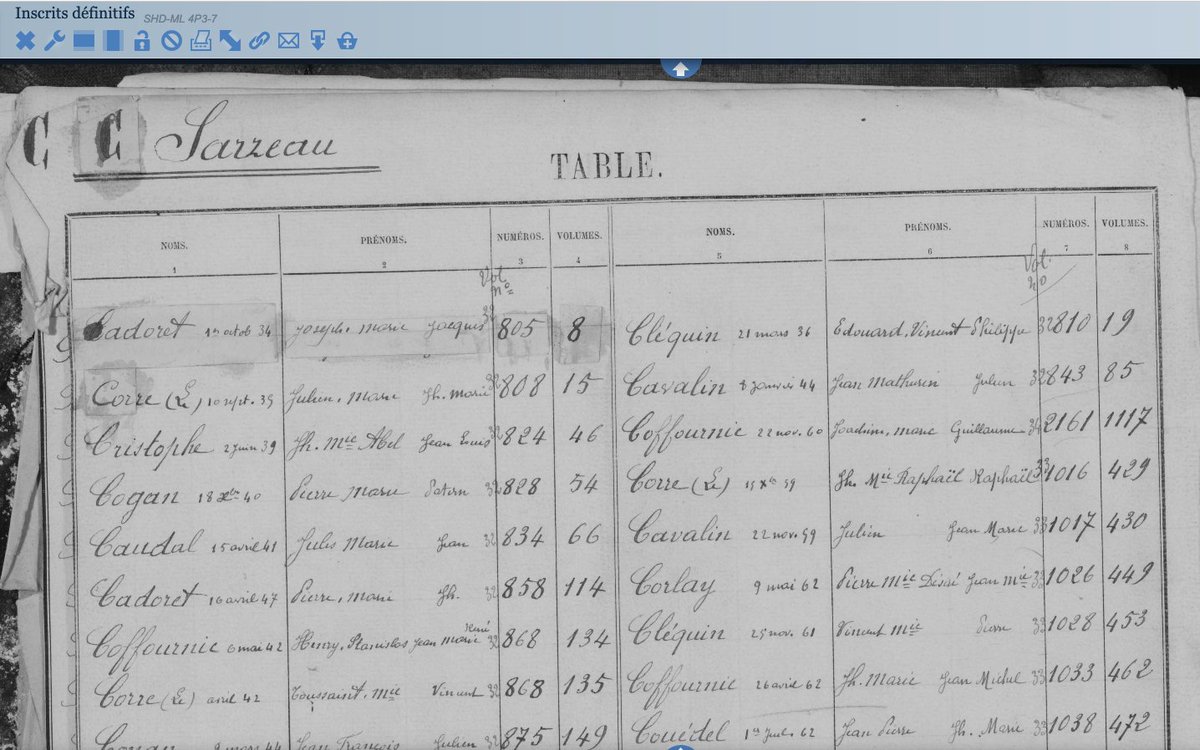 Inscrits définitifs SHD-ML 4P3-7
C C Sarzeau
TABLE.
NOMS. PRÉNOMS. NUMÉROS. VOLUMES. NOMS. PRÉNOMS. NUMÉROS. VOLUMES.
1 2 3 4 5 6 7 8
Vol. nos Vol. no
Cadoret 15 octob 34 Joseph, Marie Jacques 32 805 8
Corre (Le) 10 sept. 35 Julien, Marie Jh. Marie 32 808 15
Cristophe 27 juin 39 Jh. Mie Abel Jean Louis 32 824 46
Cogan 18 Xbre 40 Pierre Marie Patern 32 828 54
Caudal 15 avril 41 Jules Marie Jean 32 834 66
Cadoret 16 avril 47 Pierre, Marie Jh. 32 858 114
Coffournic 6 mai 42 Henry, Stanislas Jean Marie René 32 868 134
Corre (Le) avril 42 Toussaint, Mie Vincent 32 868 135
Cogan 9 mars 44 Jean François Julien 32 875 149
Cléquin 21 mars 36 Edouard, Vincent Philippe 32 810 19
Cavalin 8 janvier 44 Jean Mathurin Julien 32 843 85
Coffournic 22 nov. 60 Joachim, Marie Guillaume 34 2161 1117
Corre (Le) 15 Xbre 59 Jh. Mie Raphaël Raphaël 33 1016 429
Cavalin 22 nov. 59 Julien Jean Marie 33 1017 430
Corlay 9 mai 62 Pierre Mie Désiré Jean Mie 33 1026 449
Cléquin 25 nov. 61 Vincent Mie Pierre 33 1028 453
Coffournic 26 avril 62 Jh. Marie Jean Michel 33 1033 462
Couédel 1er Juil. 62 Jean Pierre Jh. Marie 33 1038 472